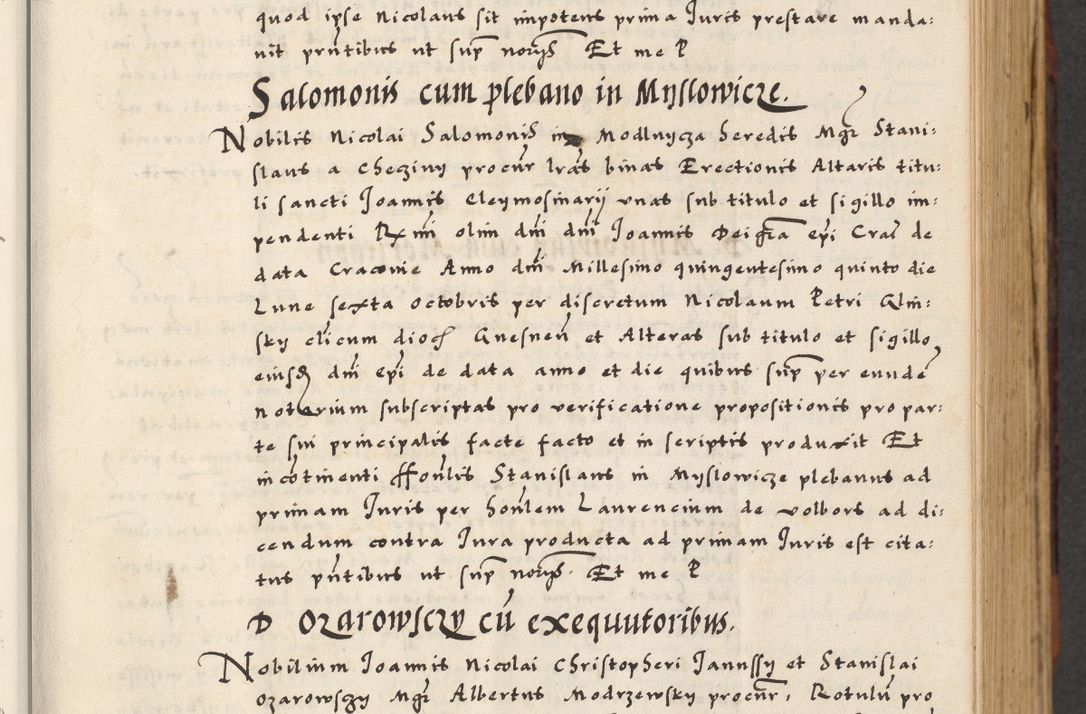 quod ipse Nicolaus sit impotens prima Juris prestare manda:
uit pñtibus ut sup̃ norꝭ Et me P
Salomonis cum plebano in Myslowicze.
Nobilis Nicolai Salomonis in Modlnycza heredis Mgr̃ Stani:
slaus a Checziny procũr lr̃as binas Erectionis Altaris titu:
li sancti Joannis Eleymosinarij vnas sub titulo et sigillo im:
pendenti Rx̃mi olim dñi dñi Joannis Dei gr̃a ep̃i Crac̃ de
data Cracouie Anno dñi Millesimo quingentesimo quinto die
Lune sexta octobris per discretum Nicolaum Petri
sky clicum dioc̃ Gnesneñ et Alteras sub titulo et sigillo
eiusd̃ dñi ep̃i de data anno et die quibus sup̃ per eundẽ
notarium subscriptas pro verificatione propositionis pro par:
te sui principalis facte facto et in scriptis produxit Et
incõtinenti ffoñlis Stanislaus in Myslowicze plebanus ad
primam Juris per hoñlem Laurencium de volbors ad di:
cendum contra Jura producta ad primam Juris est cita:
tus pñtibus ut sup̃ norꝭ Et me P
D Ozarowsczy cũ exequutoribus.
Nobilium Joannis Nicolai Christopheri Janussy et Stanislai
Ozarowszy Mgr̃ Albertus Modrzewsky procũr, Rotulũ pro